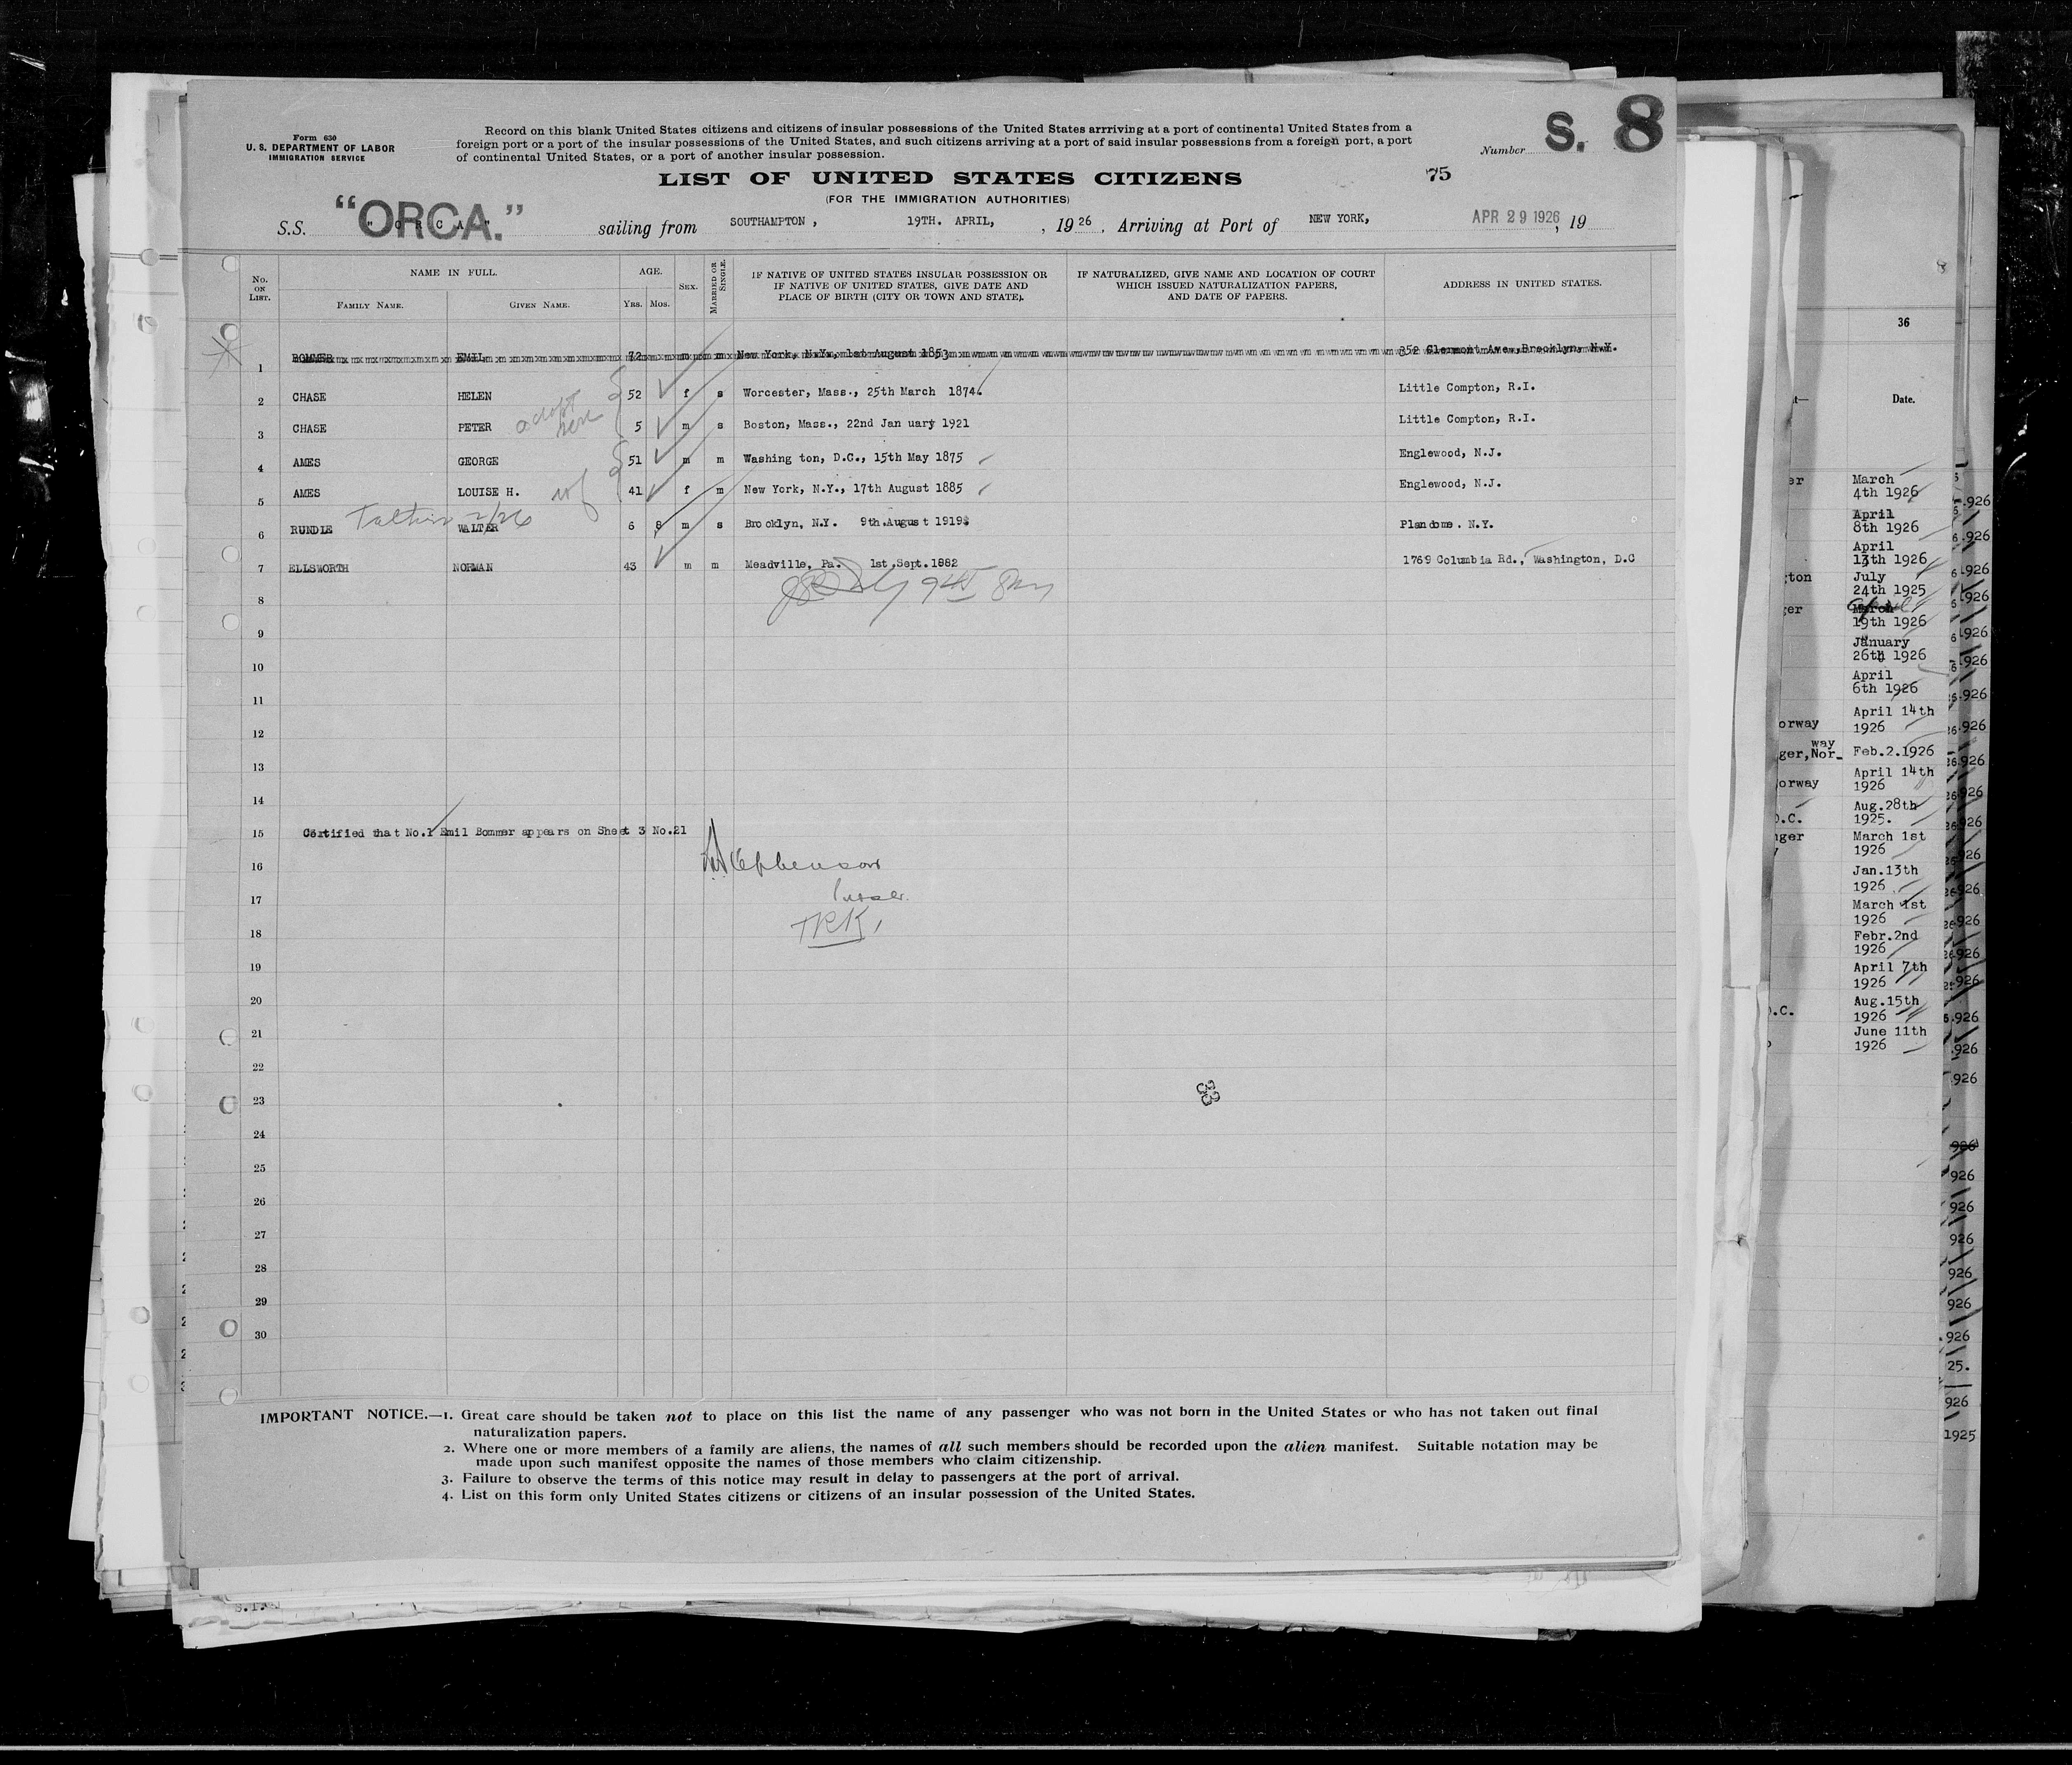 Form 630
U. S. DEPARTMENT OF LABOR
IMMIGRATION SERVICE
Record on this blank United States citizens and citizens of insular possessions of the United States arrriving at a port of continental United States from a
foreign port or a port of the insular possessions of the United States, and such citizens arriving at a port of said insular possessions from a foreign port, a port
of continental United States, or a port of another insular possession.
Number S. 8
LIST OF UNITED STATES CITIZENS
75
(FOR THE IMMIGRATION AUTHORITIES)
S.S. "ORCA." sailing from SOUTHAMPTON, 19TH. APRIL, , 1926. Arriving at Port of NEW YORK, APR 29 1926, 19
No. ON LIST. NAME IN FULL. AGE. SEX. MARRIED OR SINGLE. IF NATIVE OF UNITED STATES INSULAR POSSESSION OR IF NATIVE OF UNITED STATES, GIVE DATE AND PLACE OF BIRTH (CITY OR TOWN AND STATE). IF NATURALIZED, GIVE NAME AND LOCATION OF COURT WHICH ISSUED NATURALIZATION PAPERS, AND DATE OF PAPERS. ADDRESS IN UNITED STATES.
FAMILY NAME. GIVEN NAME. Yrs. Mos.
1 BOMMER EMIL 72 m m New York, N.Y., 1st August 1853 352 Clermont Ave, Brooklyn, N.Y.
2 CHASE HELEN 52 f s Worcester, Mass., 25th March 1874. Little Compton, R.I.
adopt
3 CHASE PETER 5 m s Boston, Mass., 22nd Jan uary 1921 Little Compton, R.I.
4 AMES GEORGE 51 m m Washing ton, D.C., 15th May 1875 Englewood, N.J.
5 AMES LOUISE H. wf 41 f m New York, N.Y., 17th August 1885 Englewood, N.J.
6 RUNDLE WALTER 6 8 m s Brooklyn, N.Y. 9th.August 1919 Plandome. N.Y.
7 ELLSWORTH NORMAN 43 m m Meadville, Pa. 1st.Sept.1882 1769 Columbia Rd., Washington, D.C
8
9
10
11
12
13
14
15 Certified that No.1 Emil Bommer appears on Sheet 3 No.21
16
17 Purser.
18
19
20
21
22
23 33
24
25
26
27
28
29
30
IMPORTANT NOTICE.—1. Great care should be taken not to place on this list the name of any passenger who was not born in the United States or who has not taken out final
naturalization papers.
2. Where one or more members of a family are aliens, the names of all such members should be recorded upon the alien manifest. Suitable notation may be
made upon such manifest opposite the names of those members who claim citizenship.
3. Failure to observe the terms of this notice may result in delay to passengers at the port of arrival.
4. List on this form only United States citizens or citizens of an insular possession of the United States.
36
Date.
March
4th 1926
April
8th 1926
April
13th 1926
July
24th 1925
March
19th 1926
January
26th 1926
April
6th 1926
orway April 14th
1926
way
ger,Nor- Feb.2.1926
orway April 14th
1926
Aug.28th
1925.
March 1st
1926
Jan.13th
1926
March 1st
1926
Febr.2nd
1926
April 7th
1926
Aug.15th
1926
June 11th
1926